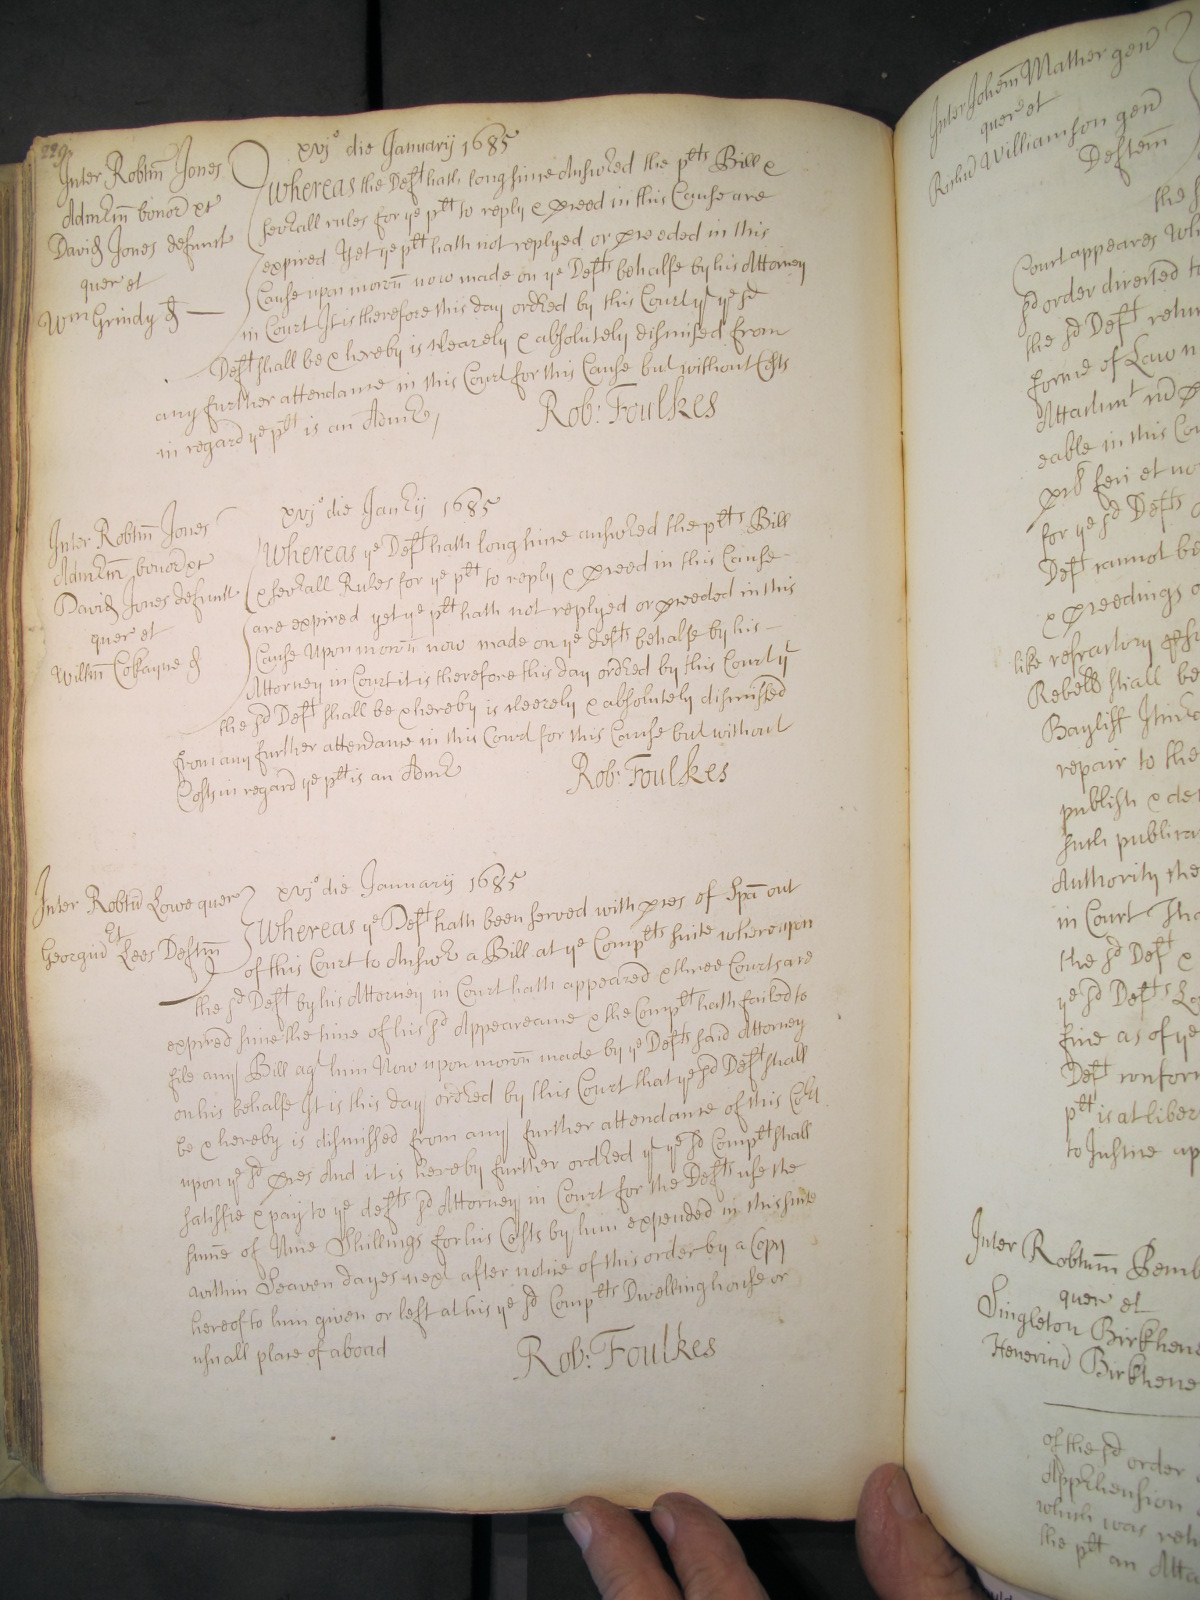 229
xvjº die Januarij 1685
Inter Robtm̄ Jones
Admrm bonor xr
David Jones defunct
quer et
Wm Grindy d
Whereas the Deft hath long since Answred the pltts Bill &
sevrall rules for ye pltt to reply & pceed in this Cause are
expired Yet ye pltt hath not replyed or pceeded in this
Cause upon moc̄on now made on ye Defts behalfe by his Attorney
in Court It is therefore this day ordred by this Court yt ye sd
Deft shall be & hereby is clearely & absolutely dismised from
any further attendance in this Court for this Cause but without Costs
in regard ye pltt is an Admr
Rob: Foulkes
xvjº die Janrij 1685
Inter Robtm̄ Jones
Admrm bonor xr
David Jones defunct
quer et
Willm̄ Cokayne d
Whereas ye Deft hath long since answred the pltts Bill
& sevrall Rules for ye pltt to reply & pceed in this Cause
are expired yet ye pltt hath not replyed or pceeded in this
Cause Upon moc̄on now made on ye Defts behalfe by his
Attorney in Court it is therefore this day ordred by this Court yt
the sd Deft shall be & hereby is cleerely & absolutely dismissed
from any further attendance in this Court for this Cause but without
Costs in regard ye pltt is an Admr
Rob: Foulkes
xvjº die Januarij 1685
Inter Robtū Lowe quer
et
Georgiū Lees Deftem̄
Whereas ye Deft hath been served with pces of Spā out
of this Court to Answr a Bill at ye Complts suite whereupon
the sd Deft by his Attorney in Court hath appeared & three Courts are
expired since the time of his sd Appeareance & the Complt hath failed to
file any Bill agt him Now upon moc̄on made by ye Defts said Attorney
on his behalfe It is this day ordred by this Court that ye sd Deft shall
be & hereby is dismissed from any further attendance of this Cort
upon ye sd pces And it is hereby further ordred yt ye sd Complt shall
satisfie & pay to ye defts sd Attorney in Court for the Defts use the
sum̄e of Nine Shillings for his Costs by him expended in this suite
within Seaven dayes next after notice of this order by a Copy
hereof to him given or left at his ye sd Complts Dwelling house or
usuall place of aboad
Rob: Foulkes
Inter Johem̄ Mather gen
quer et
Richd Williamson gen
Deftem̄
the s
Court appeares
sd order directed
the sd Deft
forme of Law
eable in this
for ye sd Defts
Deft cannot be
& pceedings
like refractory
Rebell shall be
Bayliff
repair to the
publish & de
such publica
Authority the
in Court
the sd Deft &
ye sd Defts
fine as of ye
Deft conform
pltt is at liber
to Justice up
Inter Robtum̄ Pemb
quer et
Singleton Birkhene
Henericū Birkhene
of the sd order
Apprehension
which was retu
the pltt an Atta